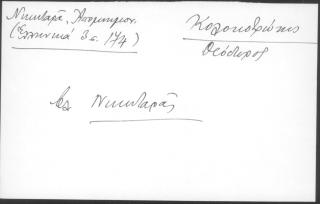 Νικηταρᾶ, Ἀπομνημον.
(Ἑλληνικά 3 σ. 174)
Κολοκοτρώνης
Θεόδωρος
βλ. Νικηταρᾶς